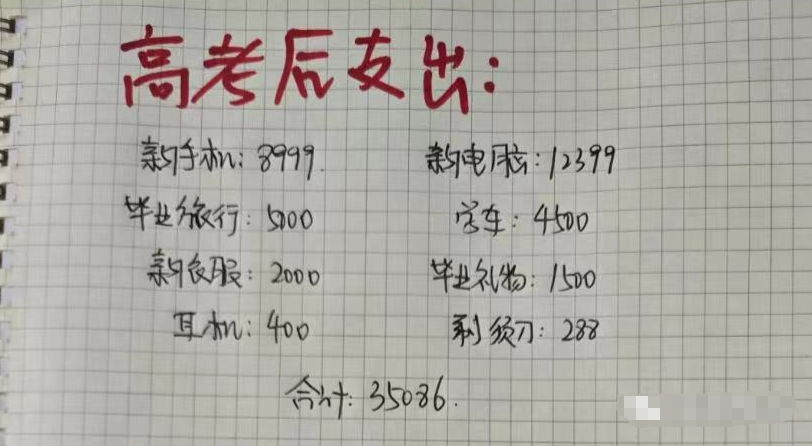 高考后支出:
新手机: 8999. 新电脑: 12399
毕业旅行: 5000 学车: 4500
新衣服: 2000 毕业礼物: 1500
耳机: 400 剃须刀: 288
合计: 35086.